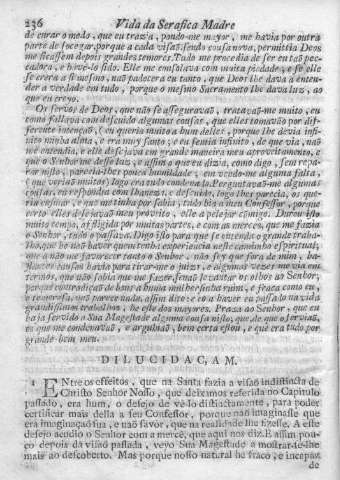 236 Vida da Serafica Madre
de curar o medo, que eu trazia, pondo-me mayor, me havia por outra
parte de socegar, porque a cada visaõ, sendo cousa nova, permittia Deos
me ficassem depois grandes temores. Tudo me procedia de ser eu taõ pec-
cadora, e havelo sido. Elle me consolava com muita piedade, e se elle
se crera a si mesmo, naõ padecera eu tanto, que Deos lhe dava a enten-
der a verdade em tudo, porque o mesmo Sacramento lhe dava luz, ao
que eu creyo.
Os servos de Deos, que naõ se asseguravaõ, trataçaõ-me muito, eu
como fallava com descuido algumas cousas, que elles tomavaõ por dif-
ferente intençaõ, (eu queria muito a hum delles, porque lhe devia infi-
nito minha alma, e era muy santo, eu sentia infinito, de que via, naõ
me entendia, e elle desejava em grande maneira meu aproveitamento, e
que o Senhor me desse luz, e assim o que eu dizia, como digo, sem repa-
rar nisso, parecia-lhes pouca humildade, em vendo-me alguma falta,
(que veriaõ muitas) logo era tudo condenado. Perguntavaõ-me algumas
cousas, eu respondia com lhaneza, e descuido, logo lhes parecia, os que-
ria ensinar, e que me tinha por sabia, tudo hia a meu Confessor, porque
certo elles desejavaõ meu proveito, elle a pelejar comigo. Durou isto
muito tempo, afligida por muitas partes, e com as merces, que me fazia
o Senhor, tudo o passava. Digo isto para que se entenda o grande traba-
lho, que he naõ haver quem tenha experiencia neste caminho espiritual;
que a naõ me favorecer tanto o Senhor, naõ sey que fora de mim, ba-
stantes cousas havia para tirar-me o juizo, e algumas vezes me via em
termos, que naõ sabia que me fazer, senaõ levantar os olhos ao Senhor,
porque contradiçaõ de bons a huma mulhersinha ruim, e fraca como eu,
e temerosa, naõ parece nada, assim dito; e com haver eu passado na vida
grandissimos trabalhos, he este dos mayores. Praza ao Senhor, que eu
haja servido a Sua Magestade alguma cousa nisso, que de que o serviaõ,
os que me condenavaõ, e arguhiaõ, bem certa estou, e que era tudo por
grande bem meu.
DILUCIDAC,AM.
1 ENtre os effeitos, que na Santa fazia a visaõ indistincta de
Christo Senhor Nosso, que deixamos referida no Capitulo
passado, era hum, o desejo de vê-lo distinctamente, para poder
certificar mais della a seu Confessor, porque naõ imaginasse que
era imaginaçaõ sua, e naõ favor, que na realidade lhe fizesse. A este
desejo acodio o Senhor com a mercè, que aqui nos diz. E assim pou-
co depois da visaõ passada, veyo Sua Magestade a mostrar-se-lhe
mais ao descoberto. Mas porque nosso natural he fraco, e incapaz
de